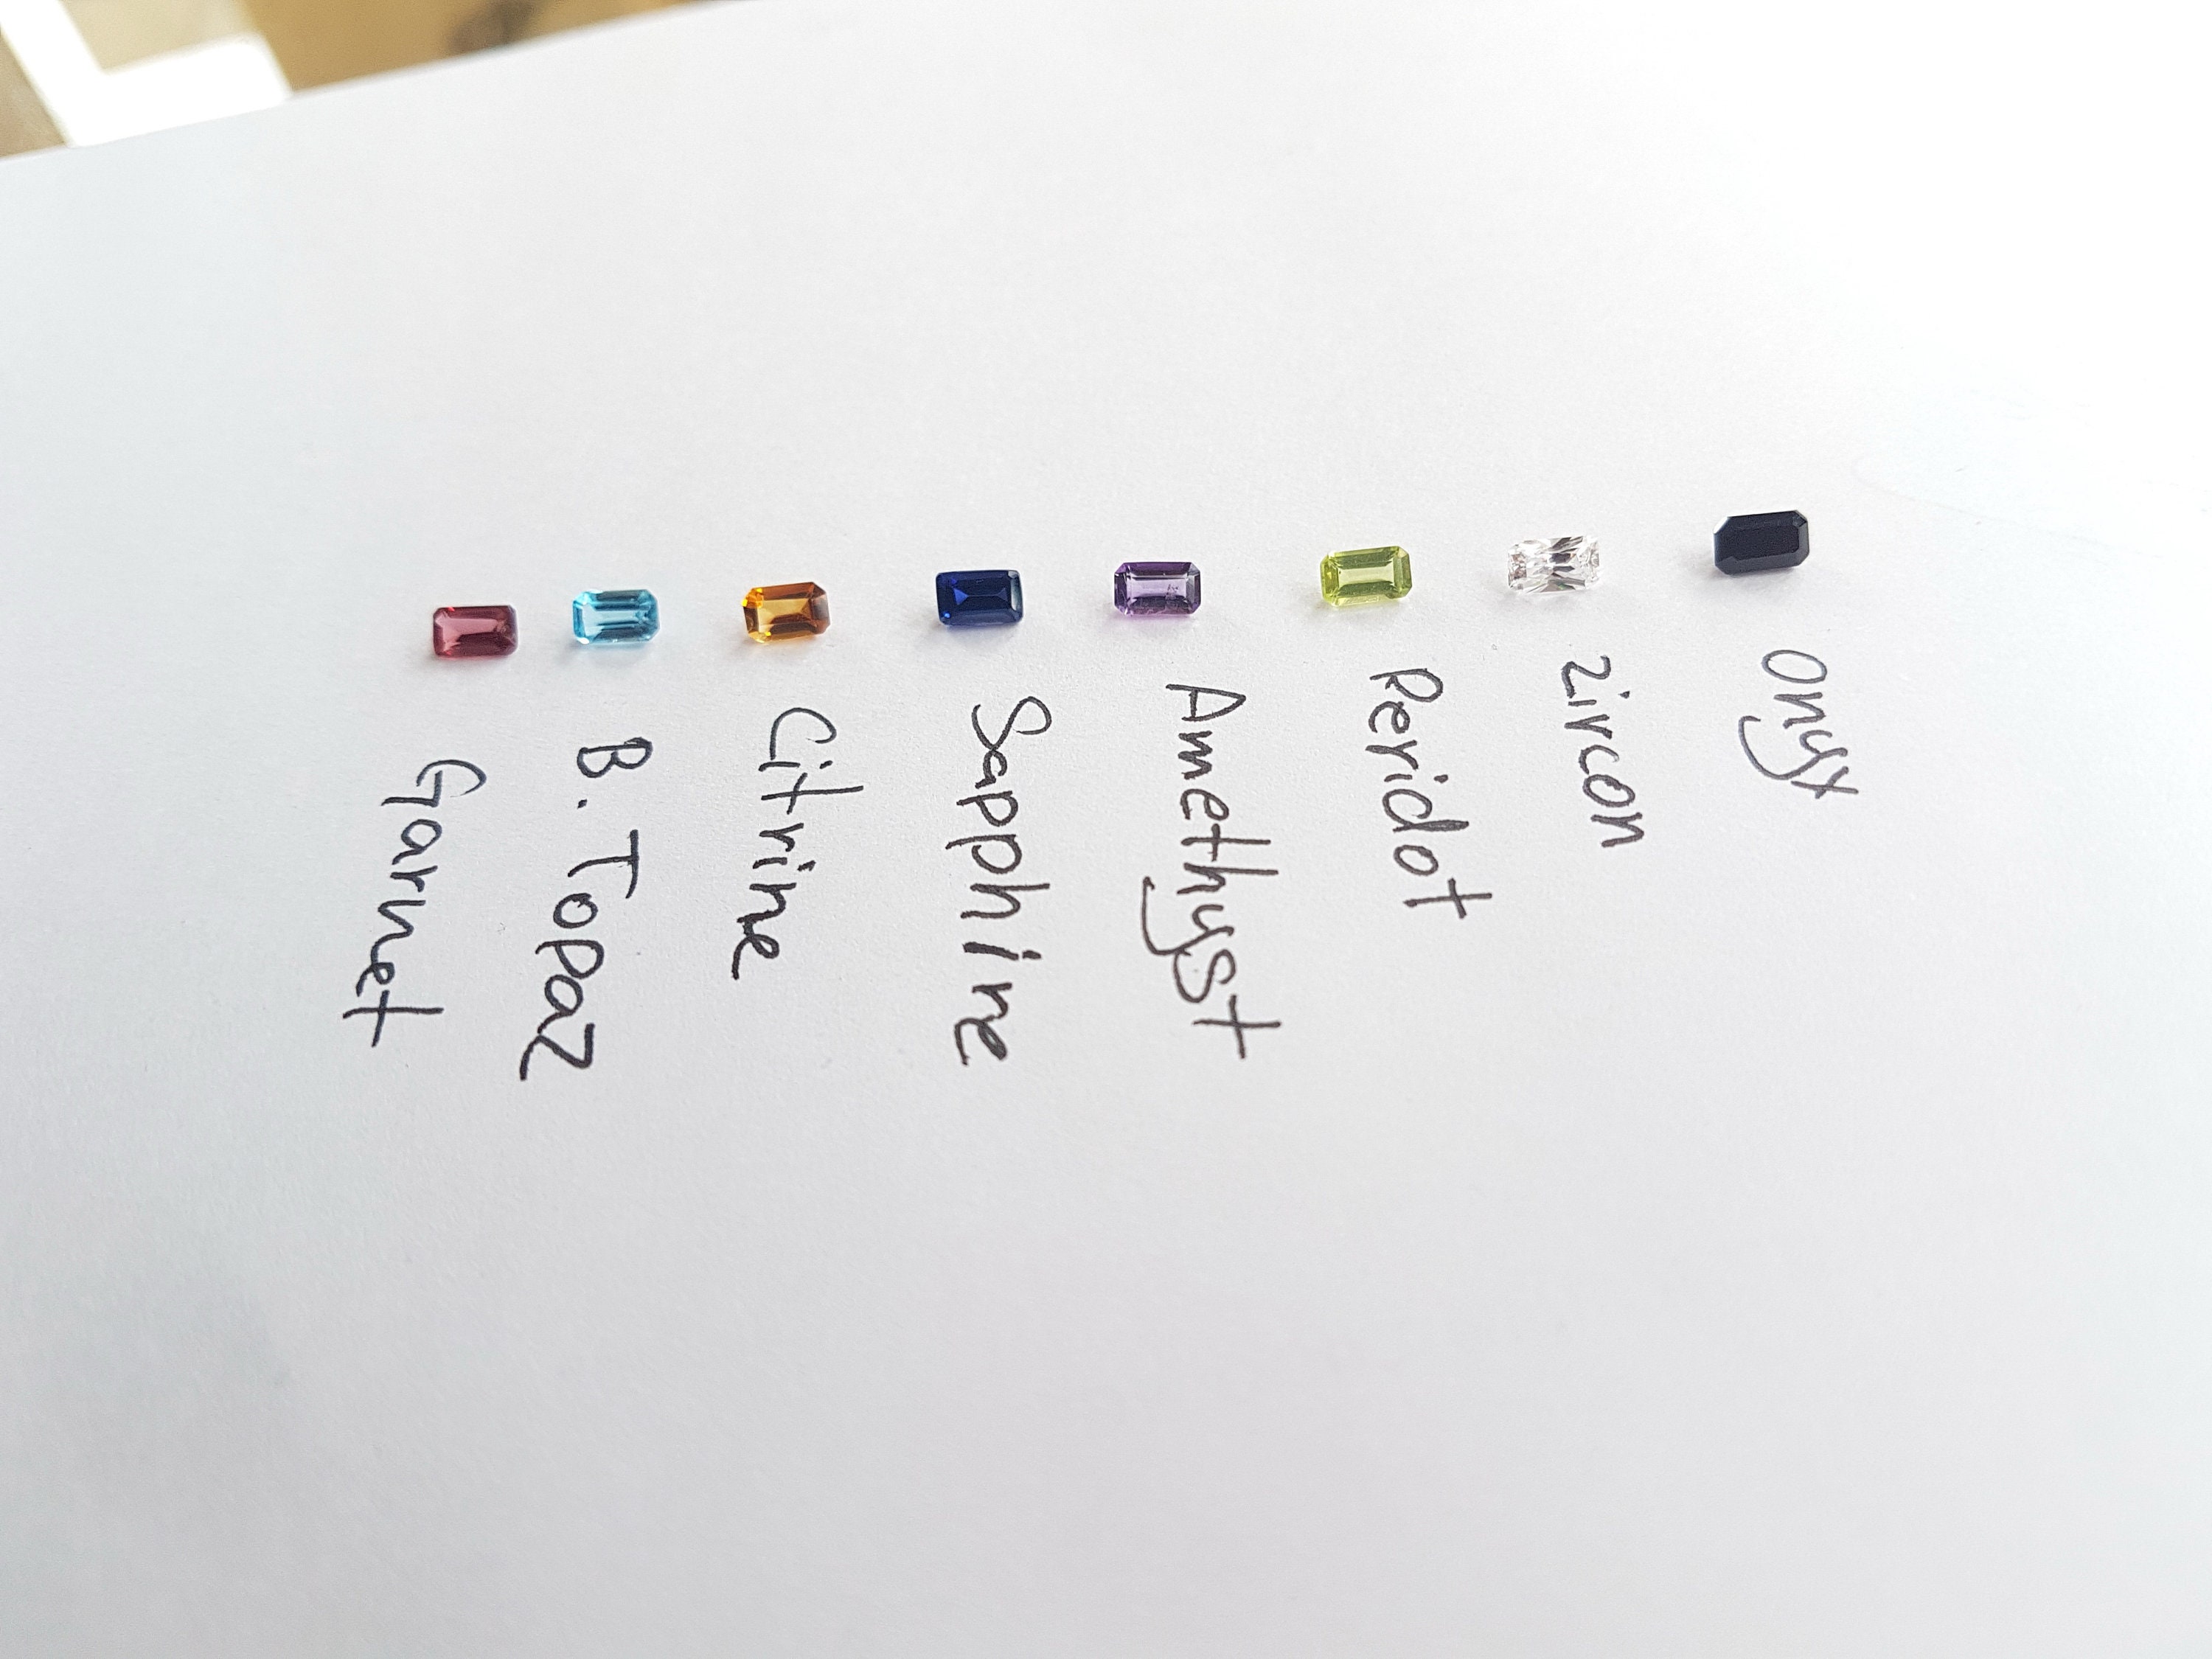 Onyx
Zircon
Peridot
Amethyst
Sapphire
Citrine
B. Topaz
Garnet